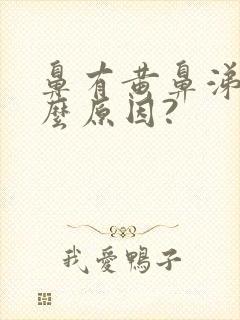 鼻有黄鼻涕
麼原因?
我愛鴨子